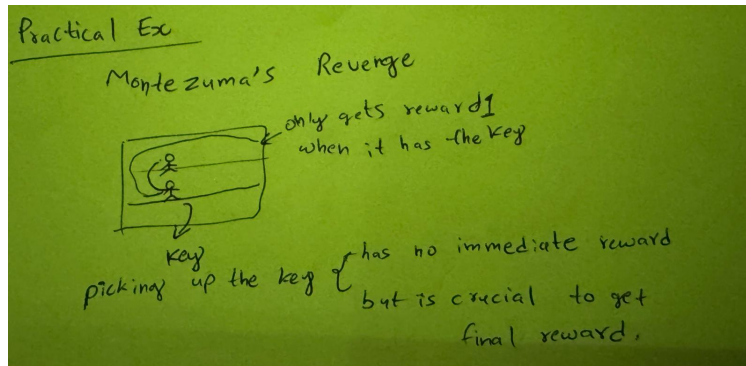 Practical Ex
Montezuma's Revenge
only gets reward 1
when it has the key
key
picking up the key { has no immediate reward
but is crucial to get
final reward.